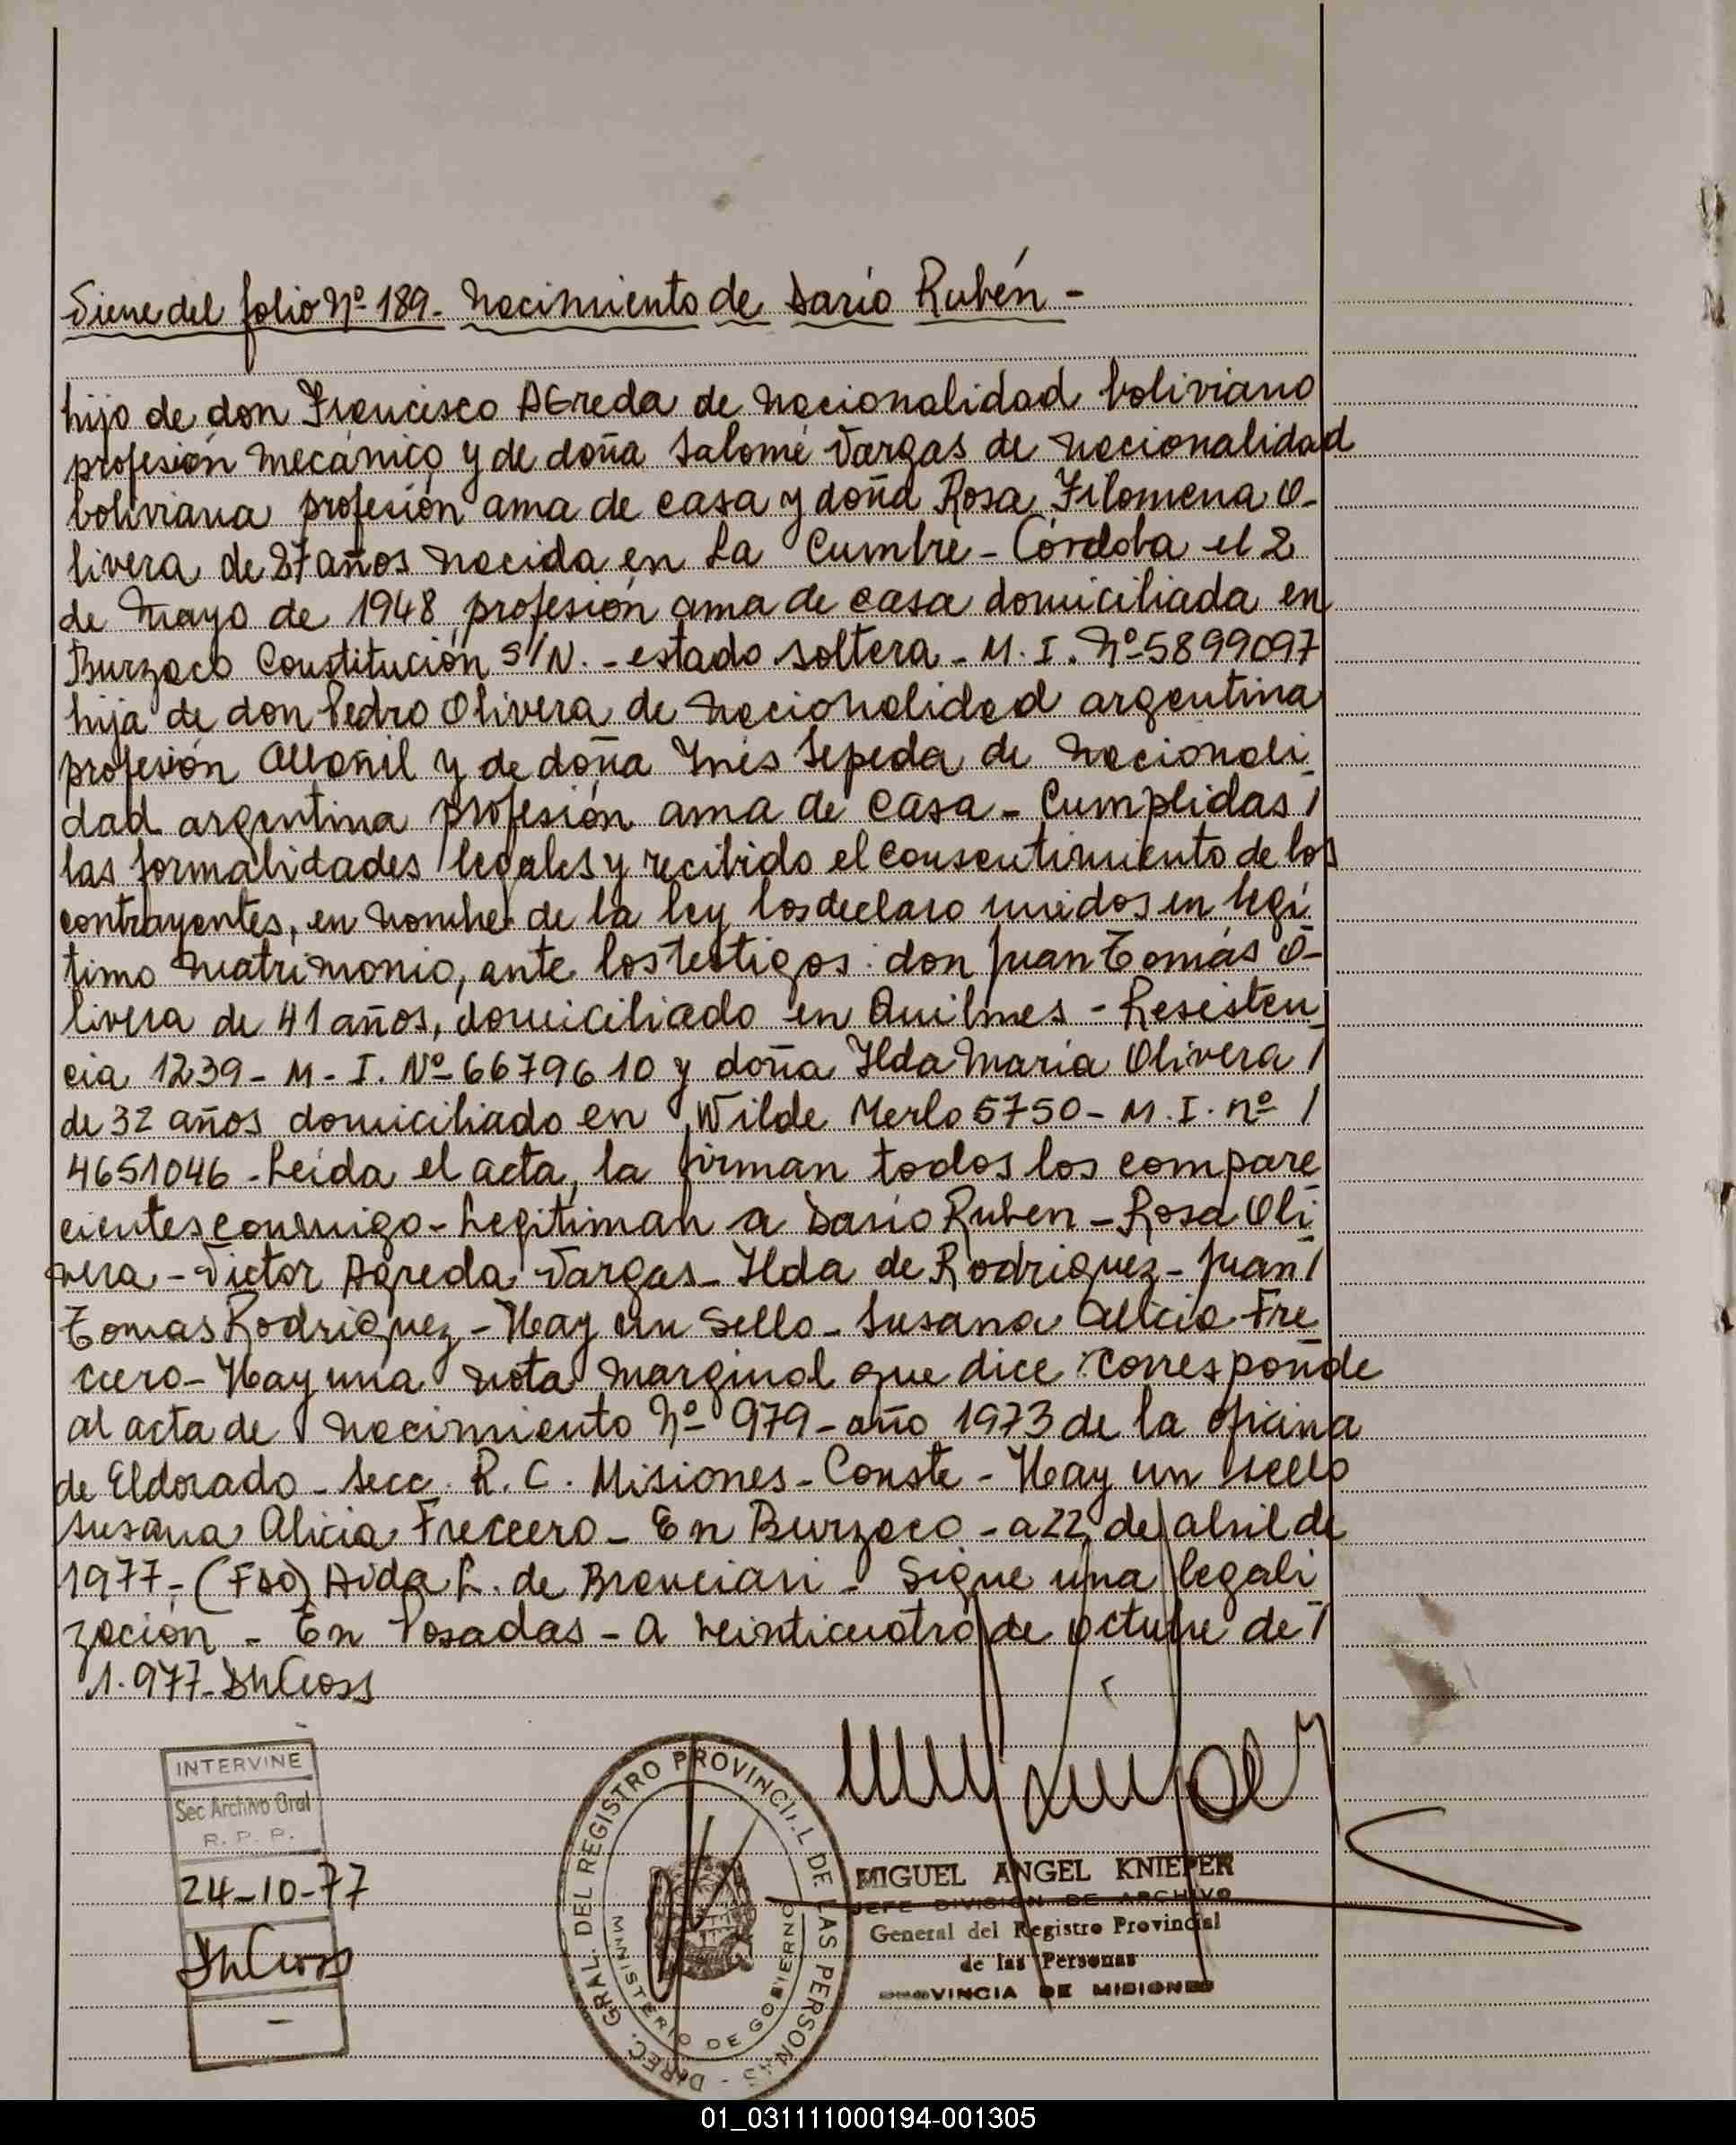 Viene del folio Nº 189- Nacimiento de Darío Rubén -
hijo de don Francisco AGreda de nacionalidad boliviano
profesión mecánico y de doña Salomé Vargas de nacionalidad
boliviana profesión ama de casa y doña Rosa Filomena O-
livera de 27 años nacida en La Cumbre - Córdoba el 2
de Mayo de 1948 profesión ama de casa domiciliada en
Burzaco Constitución S/N. - estado soltera - M. I. Nº 5899097
hija de don Pedro Olivera de nacionalidad argentina
profesión albañil y de doña Ynés Sepeda de nacionali
dad argentina profesión ama de casa - Cumplidas /
las formalidades legales y recibido el consentimiento de los
contrayentes, en nombre de la ley los declaro unidos en legí
timo matrimonio, ante los testigos: don Juan Tomás O-
livera de 41 años, domiciliado en Quilmes - Resisten
cia 1239 - M - I. Nº 6679610 y doña Ilda María Olivera /
de 32 años domiciliado en Wilde Merlo 5750 - M. I. nº /
4651046 - Leída el acta, la firman todos los compare
cientes conmigo - Legitiman a Darío Ruben - Rosa Oli
vera - Victor Agreda Vargas - Ilda de Rodriguez - Juan /
Tomas Rodriguez - Hay un sello - Susana Alicia Fre
ccero - Hay una nota marginal que dice: Corresponde
al acta de nacimiento Nº 979 - año 1973 de la oficina
de Eldorado - Secc. R. C. Misiones - Conste - Hay un sello
Susana Alicia Freccero - En Burzaco - a 22 de abril de
1977 - (Fdo) Aida L. de - Sigue una legali
zación - En Posadas - a veinticuatro de octubre de /
1.977 -
INTERVINE
Sec Archivo Gral
R. P. P.
24-10-77
DIREC. GRAL. DEL REGISTRO PROVINCIAL DE LAS PERSONAS -
MINISTERIO DE GOBIERNO
MIGUEL ANGEL KNIEPER
JEFE DIVISION DE ARCHIVO
General del Registro Provincial
de las Personas
PROVINCIA DE MISIONES
01_031111000194-001305